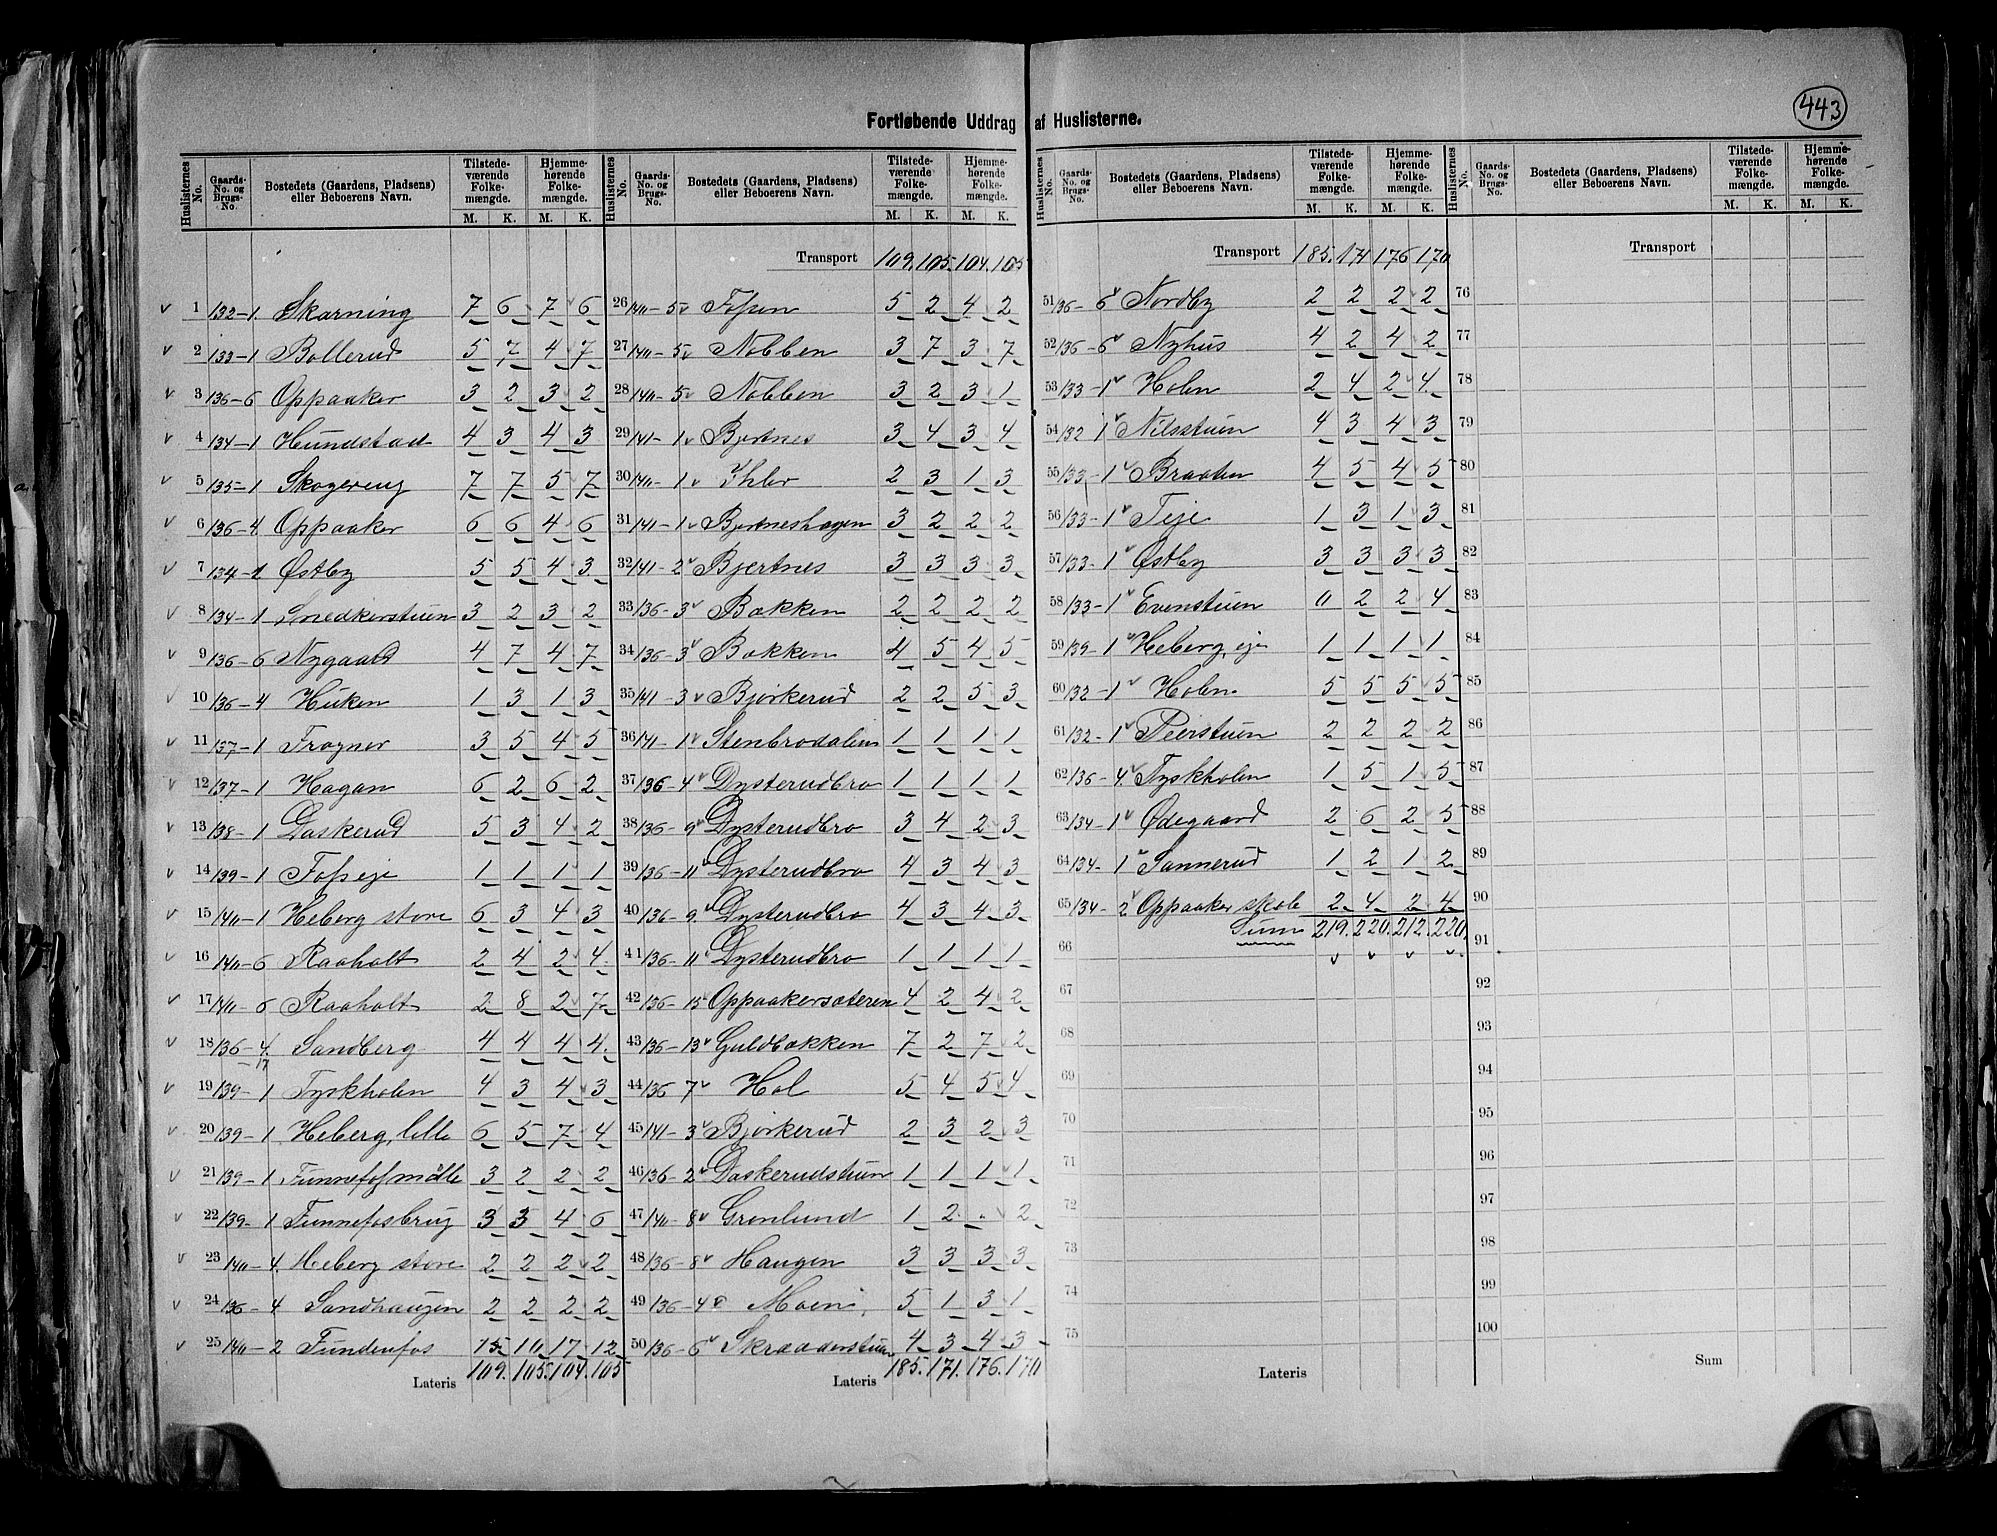 443
Fortløbende Uddrag af Huslisterne.
Huslisternes No. | Gaards-No. og Brugs-No. | Bostedets (Gaardens, Pladsens) eller Beboerens Navn. | Tilstedeværende Folkemængde. M. K. | Hjemmehørende Folkemængde. M. K.
1 132-1. Skarning 7 6 7 6
2 133-1 Bollerud 5 7 4 7
3 136-6 Oppaaker 3 2 3 2
4 134-1 Hundstad 4 3 4 3
5 135-1 Skogereng 7 7 5 7
6 136-4 Oppaaker 6 6 4 6
7 134-2 Østby 5 5 4 3
8 134-1 Snedkerstuen 3 2 3 2
9 136-6 Nygaard 4 7 4 7
10 136-4 Huken 1 3 1 3
11 137-1 Frogner 3 5 4 5
12 137-1 Hagan 6 2 6 2
13 138-1 Daskerud 5 3 4 2
14 139-1 Fosseje 1 1 1 1
15 140-1 Heberg store 6 3 4 3
16 140-6 Raaholt 2 4 2 4
17 140-6 Raaholt 2 8 2 7
18 136-4. 17 Sandberg 4 4 4 4
19 139-1 Tyskholen 4 3 4 3
20 139-1 Heberg, lille 6 5 7 4
21 139-1 Funnefosmölle 3 2 2 2
22 139-1 Funnefosbrug 3 3 4 6
23 140-4. Heberg store 2 2 2 2
24 136-4 Sandhaugen 2 2 2 2
25 140-2 Fundenfos 15 10 17 12
Lateris 109. 105. 104. 105
Transport 109. 105. 104. 105
26 140-5 Fossen 5 2 4 2
27 140-5 Nobben 3 7 3 7
28 140-5 Nobben 3 2 3 1
29 141-1 Bjertnes 3 4 3 4
30 140-1 Ihler 2 3 1 3
31 141-1 Bjertneshagen 3 2 2 2
32 141-2 Bjertnes 3 3 3 3
33 136-3 Bakken 2 2 2 2
34 136-3 Bakken 4 5 4 5
35 141-3 Bjørkerud 2 2 5 3
36 141-1 Stenbrodalen 1 1 1 1
37 136-4 Dysterudbro 1 1 1 1
38 136-9 Dysterudbro 3 4 2 3
39 136-11 Dysterudbro 4 3 4 3
40 136-9. Dysterudbro 4 3 4 3
41 136-11 Dysterudbro 1 1 1 1
42 136-15 Oppaakersæteren 4 2 4 2
43 136-13 Guldbakken 7 2 7 2
44 136 7 Hol 5 4 5 4
45 141-3 Bjørkerud 2 3 2 3
46 136-2 Daskerudstuen 1 1 1 1
47 140-8 Grønlund 1 2 . 2
48 136-8 Haugen 3 3 3 3
49 136-4 Moen 5 1 3 1
50 136-6 Skrædderstuen 4 3 4 3
Lateris 185. 171. 176. 170
Transport 185. 171 176 170
51 136-6 Nordby 2 2 2 2
52 136-6 Nyhus 4 2 4 2
53 133-1 Holen 2 4 2 4.
54 132 1 Nilsstuen 4 3 4 3
55 133-1 Braaten 4 5 4 5
56 133-1 Teje 1 3 1 3
57 133-1 Østby 3 3 3 3
58 133-1 Evenstuen 0 2 2 4
59 139-1 Heberg, eje 1 1 1 1
60 132-1 Holen 5 5 5 5
61 132-1 Peerstuen 2 2 2 2
62 136-4. Tyskholen 1 5 1 5
63 134-1 Ødegaard 2 6 2 5
64 134-1 Sannerud 1 2 1 2
65 134-2 Oppaaker skole 2 4 2 4
Sum 219. 220. 212. 220.
66
67
68
69
70
71
72
73
74
75
Lateris
Transport
76
77
78
79
80
81
82
83
84
85
86
87
88
89
90
91
92
93
94
95
96
97
98
99
100
Sum